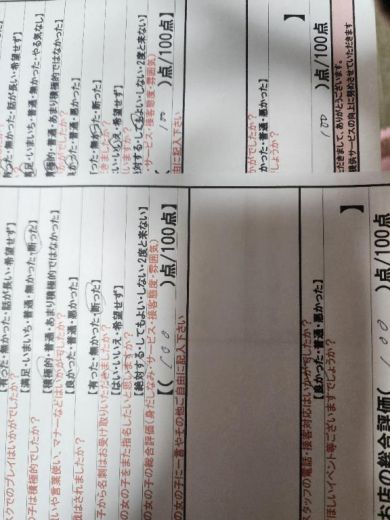 った・無かった・話が長い・希望せず】
足・いまいち・普通・無かった・やる気なし】
極的・普通・あまり積極的ではなかった】
かった・普通・悪かった】
った・無かった・断った】
はい・いいえ・希望せず】
対する・してもよい・しない・2度と来ない】
・サービス・接客態度・雰囲気）
100 ）点/100点】
由に記入下さい
がでしたか？
かった・普通・悪かった】
しょうか？
】
100 ）点/100点
だきまして、ありがとうございます。
提供サービスの向上に努めさせていただきます
クでのプレイはいかがでしたか
【有った・無かった・話が長い・希望せず】
の子は積極的でしたか？
【満足・いまいち・普通・無かった・断った】
いや言葉使い、マナーなどはいかがでしたか？
【積極的・普通・あまり積極的ではなかった】
はされましたか？
【良かった・普通・悪かった】
子から名刺はお受け取りいただきましたか？
【有った・無かった・断った】
の女の子をまた指名したいと思いますか？
【はい・いいえ・希望せず】
の女の子の総合評価（身だしなみ・サービス・接客態度・雰囲気）
【絶対する・してもよい・しない・2度と来ない】
【（ 100 ）点/100点】
の女の子に一言やその他ご自由に記入下さい
スタッフの電話・接客対応はいかがでしたか？
【良かった・普通・悪かった】
ほしいイベント等ございますでしょうか？
】
お店の総合評価（ 100 ）点/100点